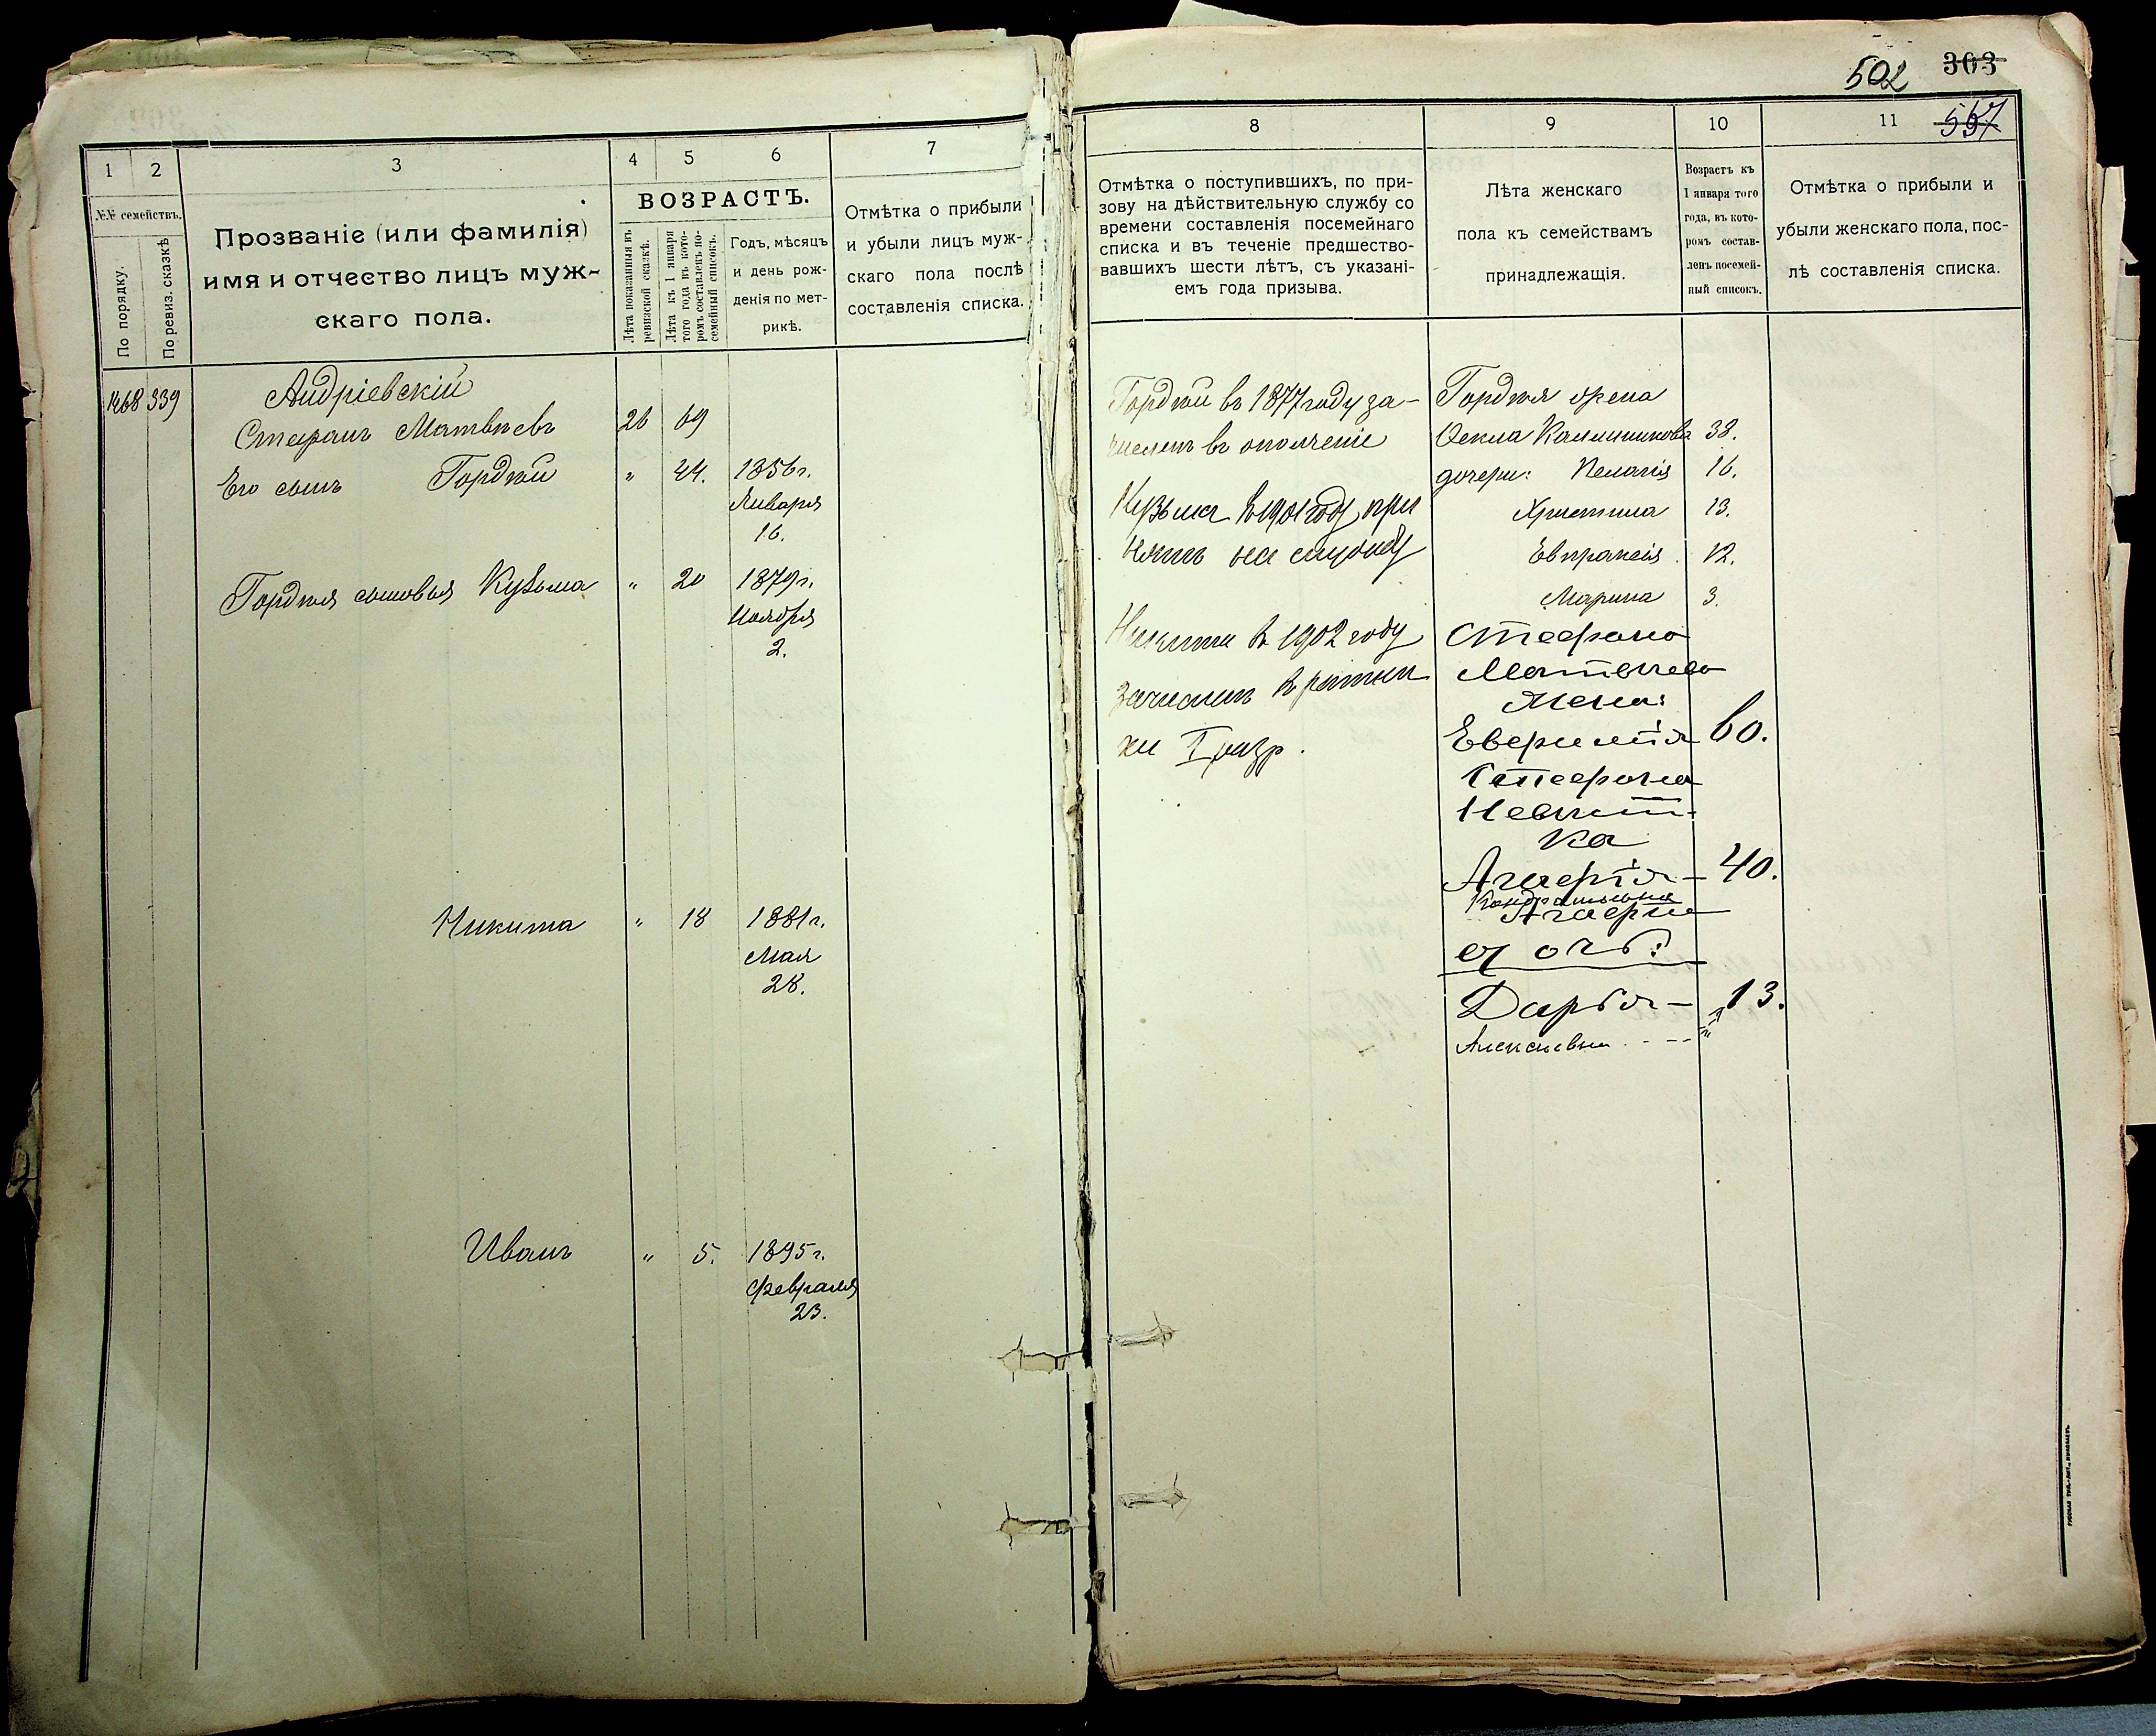 1
2
3
4
5
6
7
№№ семействъ.
По порядку.
По ревиз. сказкѣ
Прозваніе (или фамилія)
имя и отчество лицъ муж-
скаго пола.
ВОЗРАСТЪ.
Лѣта показанныя въ
ревизской сказкѣ.
Лѣта къ 1 января
того года въ кото-
ромъ составленъ по-
семейный списокъ.
Годъ, мѣсяцъ
и день рож-
денія по мет-
рикѣ.
Отмѣтка о прибыли
и убыли лицъ муж-
скаго пола послѣ
составленія списка.
1468 339
Андріевскій
Стефанъ Матвѣевъ 26 69
Его сынъ Гордѣй „ 44. 1856 г.
Января
16.
Гордѣя сыновья Кузьма „ 20 1879 г.
Ноября
2.
Никита „ 18 1881 г.
Мая
28.
Иванъ „ 5. 1895 г.
Февраля
23.
502 303
557
8
9
10
11
Отмѣтка о поступившихъ, по при-
зову на дѣйствительную службу со
времени составленія посемейнаго
списка и въ теченіе предшество-
вавшихъ шести лѣтъ, съ указані-
емъ года призыва.
Лѣта женскаго
пола къ семействамъ
принадлежащія.
Возрастъ къ
1 января того
года, въ кото-
ромъ состав-
ленъ посемей-
ный списокъ.
Отмѣтка о прибыли и
убыли женскаго пола, пос-
лѣ составленія списка.
Гордѣй въ 1877 году за-
численъ въ ополченіе
Кузьма в 1901 году при
нятъ на службу
Никита в 1902 году
зачисленъ в ратни
ки I разр.
Гордѣя жена
Ѳекла Каллиникова 38.
дочери: Пелагія 16.
Христина 13.
Евпраксія 12.
Марина 3.
Стефана
Матвѣева
Жена:
Евфимія 60.
Стефана
Невѣст-
ка
Агафія — 40.
Кондратьевна
Агафіи
дочь:
Дарья — 13.
Алексѣевна
РУССКАЯ ТИПО-ЛИТ., НИКОЛАЕВЪ.